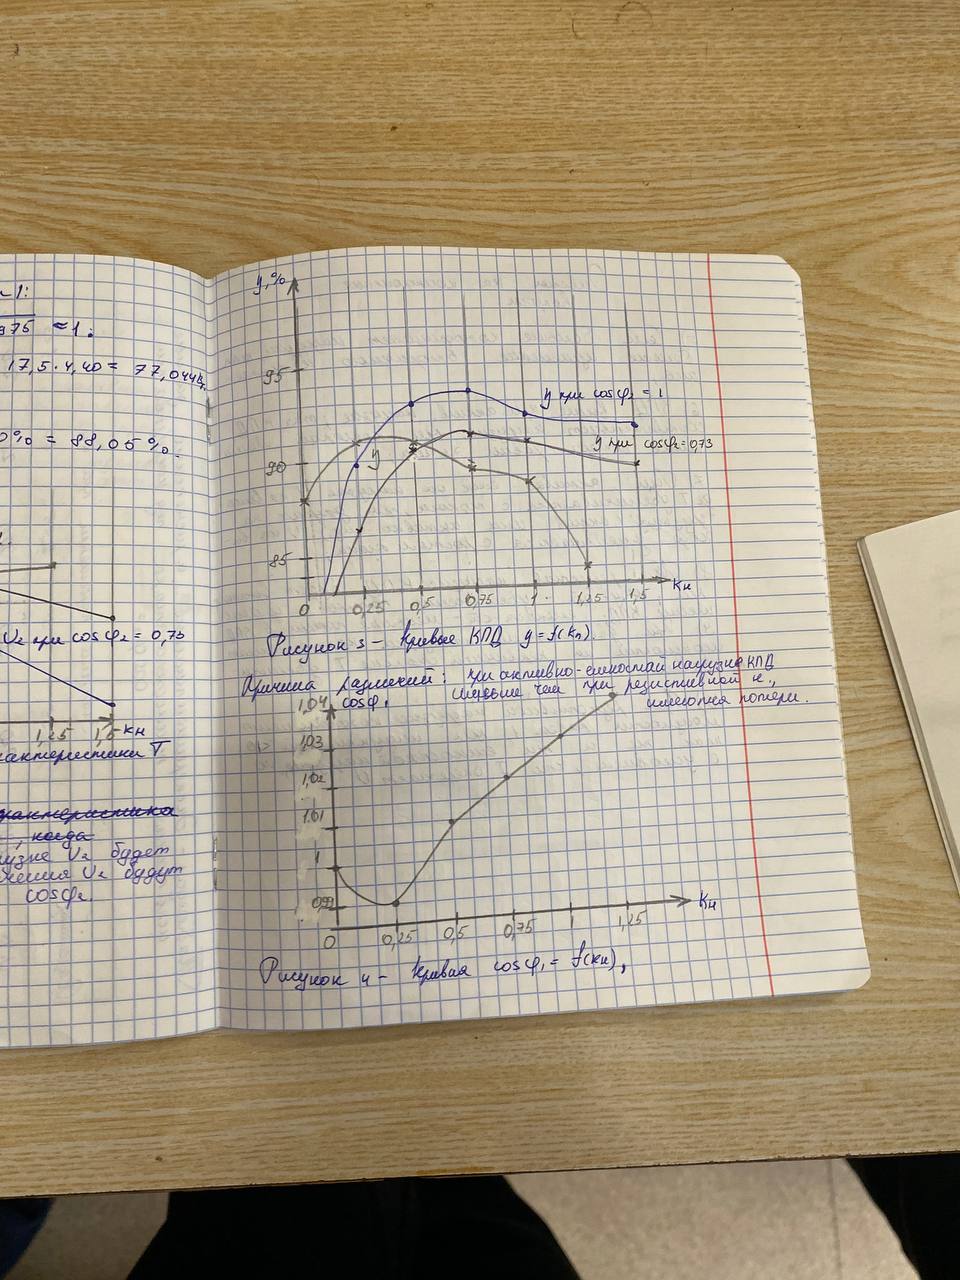 975 ≈ 1.
17,5 · 4,40 = 77,044
0% = 88,05%.
U₂ при cosφ₂ = 0,73
1,25 1,5 Kн
рактеристики Т
рактеристика
, когда
узке U₂ будет
жения U₂ будут
cosφ₂.
η,%
95
90
85
η при cosφ₂ = 1
η при cosφ₂ = 0,73
η
0 0,25 0,5 0,75 1 1,25 1,5 Kн
Рисунок 3 – Кривые КПД η = f(Kн)
Причина различий: при активно-емкостной нагрузке КПД
меньше чем при резистивной н.,
имеются потери.
cosφ₁
1,04
1,03
1,02
1,01
1
0,99
0 0,25 0,5 0,75 1 1,25 Kн
Рисунок 4 – Кривая cosφ₁ = f(Kн),